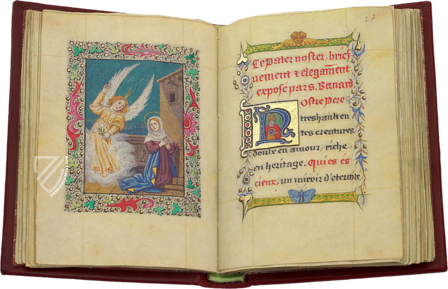 27
Le Pater noster, brief
vuement & elegamment
exposé par S. Bernard
O stre Pere
tres hault en
tes creatures
doulx en amour, riche
en heritage. Qui es es
cieux, un miroir d'eternit